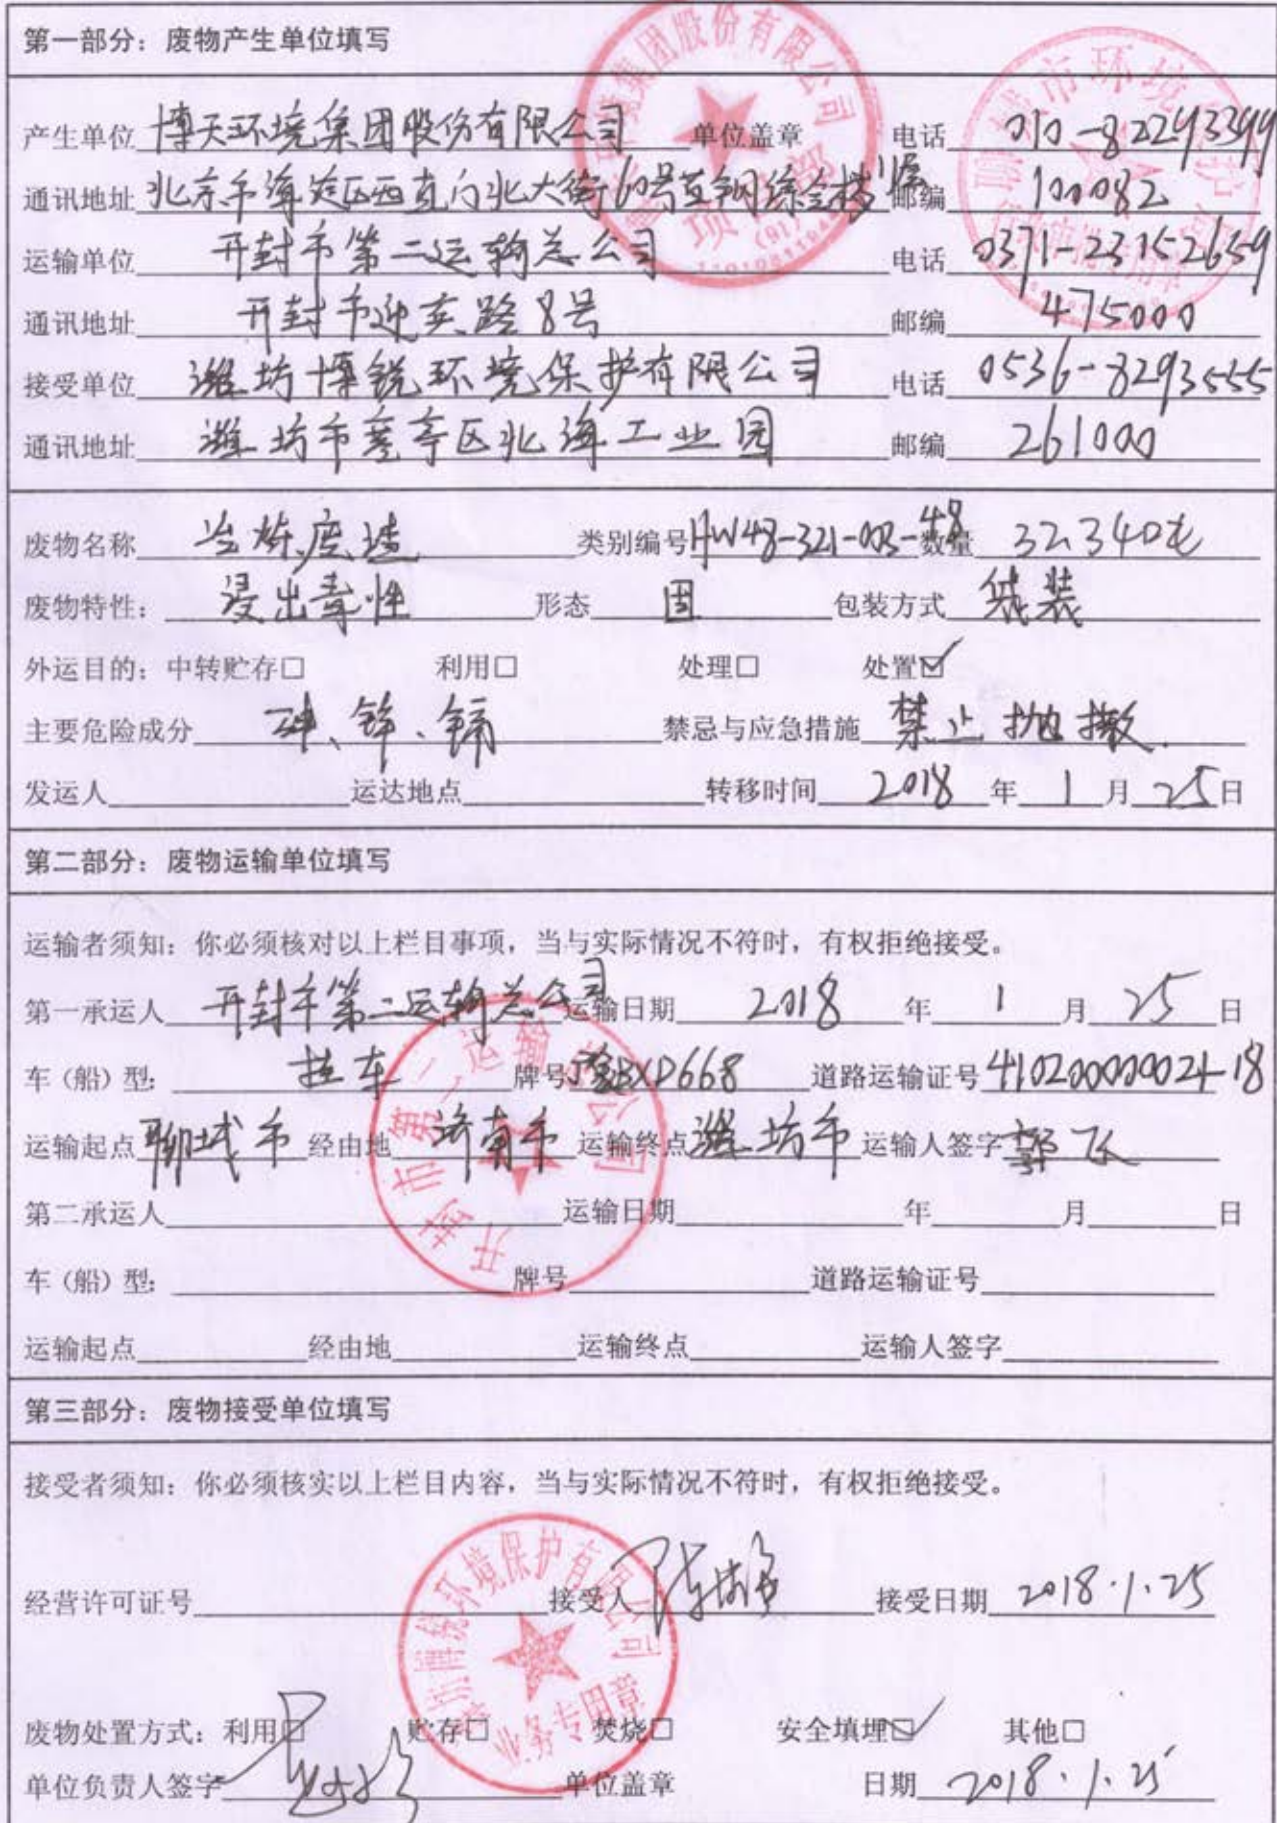 第一部分：废物产生单位填写
产生单位 博天环境集团股份有限公司 单位盖章 电话 010-82293399
通讯地址 北京市海淀区西直门北大街60号首钢综合楼 邮编 100082
运输单位 开封市第二运输总公司 电话 0371-23152659
通讯地址 开封市迎宾路8号 邮编 475000
接受单位 潍坊博锐环境保护有限公司 电话 0536-8293555
通讯地址 潍坊市寒亭区北海工业园 邮编 261000
废物名称 冶炼废渣 类别编号 HW48-321-003-48 数量 32.340t
废物特性： 浸出毒性 形态 固 包装方式 袋装
外运目的：中转贮存□ 利用□ 处理□ 处置☑
主要危险成分 砷、锌、镉 禁忌与应急措施 禁止抛撒.
发运人 运达地点 转移时间 2018 年 1 月 25 日
第二部分：废物运输单位填写
运输者须知：你必须核对以上栏目事项，当与实际情况不符时，有权拒绝接受。
第一承运人 开封市第二运输总公司 运输日期 2018 年 1 月 25 日
车（船）型： 挂车 牌号 豫BXD668 道路运输证号
运输起点 聊城市 经由地 济南市 运输终点 潍坊市 运输人签字 郭飞
第二承运人 运输日期 年 月 日
车（船）型： 牌号 道路运输证号
运输起点 经由地 运输终点 运输人签字
第三部分：废物接受单位填写
接受者须知：你必须核实以上栏目内容，当与实际情况不符时，有权拒绝接受。
经营许可证号 接受人 接受日期 2018.1.25
废物处置方式：利用□ 贮存□ 焚烧□ 安全填埋☑ 其他□
单位负责人签字 单位盖章 日期 2018.1.25